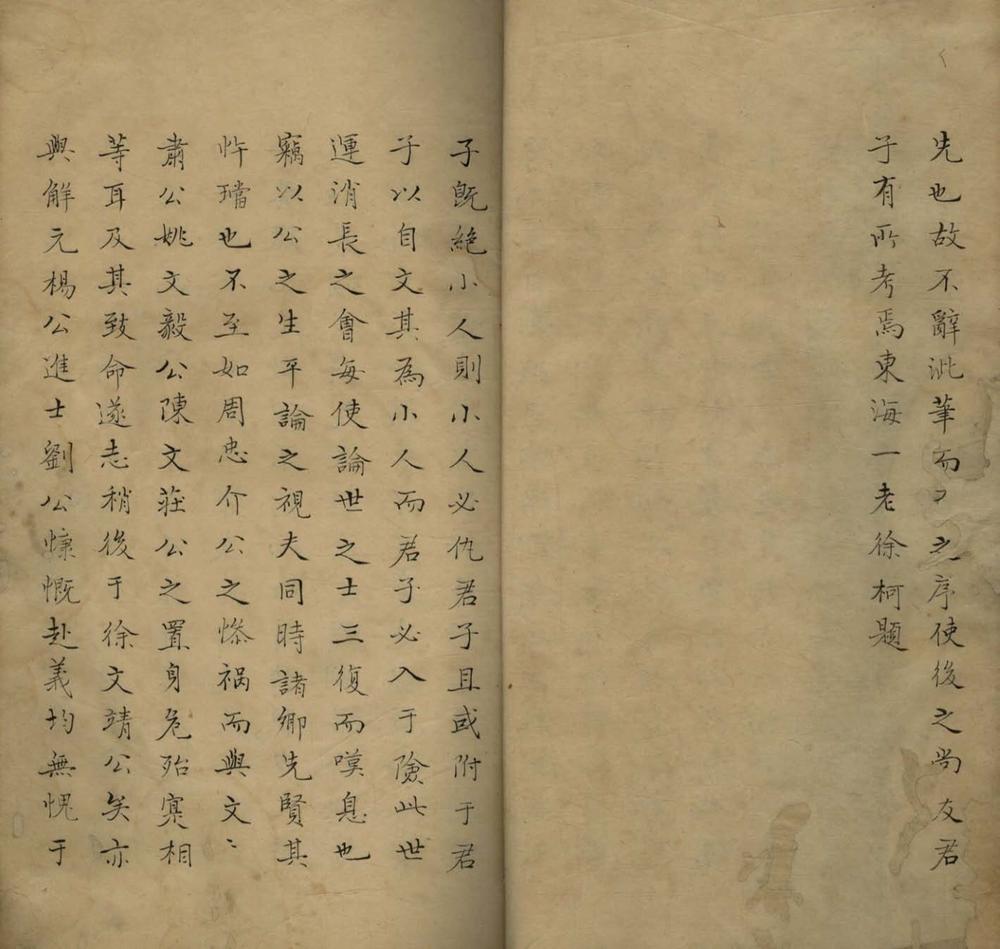 先也故不辭泚筆而为之序使後之尚友君
子有所考焉東海一老徐柯題
子旣絶小人則小人必仇君子且或附于君
子以自文其為小人而君子必入于險此世
運消長之會每使論世之士三復而嘆息也
竊以公之生平論之視夫同時諸鄉先賢其
忤璫也不至如周忠介公之慘禍而與文〻
肅公姚文毅公陳文莊公之置身危殆寔相
等耳及其致命遂志稍後于徐文靖公矣亦
與解元楊公進士劉公慷慨赴義均無愧于